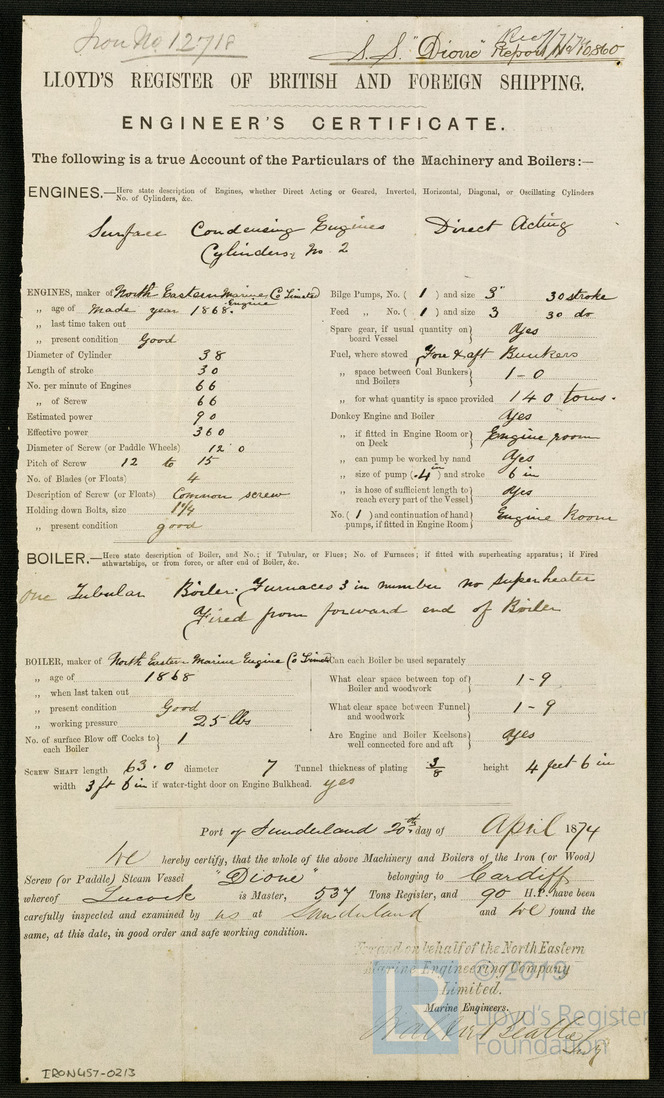 Iron No 12718
S.S. "Dione" Report No 10860
LLOYD'S REGISTER OF BRITISH AND FOREIGN SHIPPING.
ENGINEER'S CERTIFICATE.
The following is a true Account of the Particulars of the Machinery and Boilers:—
ENGINES.—Here state description of Engines, whether Direct Acting or Geared, Inverted, Horizontal, Diagonal, or Oscillating Cylinders
No. of Cylinders, &c.
Surface Condensing Engines Direct Acting
Cylinders, No. 2
ENGINES, maker of North Eastern Marine Engine Co Limited
„ age of Made year 1868.
„ last time taken out
„ present condition Good
Diameter of Cylinder 38
Length of stroke 30
No. per minute of Engines 66
„ of Screw 66
Estimated power 90
Effective power 360
Diameter of Screw (or Paddle Wheels) 12 0
Pitch of Screw 12 to 15
No. of Blades (or Floats) 4
Description of Screw (or Floats) Common screw
Holding down Bolts, size 1¼
„ present condition good
Bilge Pumps, No. ( 1 ) and size 3" 30 stroke
Feed „ No. ( 1 ) and size 3 30 do
Spare gear, if usual quantity on board Vessel } Yes
Fuel, where stowed Fore & aft Bunkers
„ space between Coal Bunkers and Boilers } 1-0
„ for what quantity is space provided 140 tons.
Donkey Engine and Boiler Yes
„ if fitted in Engine Room or on Deck } Engine room
„ can pump be worked by hand Yes
„ size of pump ( 4 in ) and stroke 6 in
„ is hose of sufficient length to reach every part of the Vessel } Yes
No. ( 1 ) and continuation of hand pumps, if fitted in Engine Room } Engine Room
BOILER.—Here state description of Boiler, and No.; if Tubular, or Flues; No. of Furnaces; if fitted with superheating apparatus; if Fired
athwartships, or from fore, or after end of Boiler, &c.
One Tubular Boiler: Furnaces 3 in number no superheater
Fired from forward end of Boiler
BOILER, maker of North Eastern Marine Engine Co Limited
„ age of 1868
„ when last taken out
„ present condition Good
„ working pressure 25 lbs
No. of surface Blow off Cocks to each Boiler } 1
Can each Boiler be used separately
What clear space between top of Boiler and woodwork } 1-9
What clear space between Funnel and woodwork } 1-9
Are Engine and Boiler Keelsons well connected fore and aft } Yes
SCREW SHAFT length 63.0 diameter 7 Tunnel thickness of plating 3/8 height 4 feet 6 in
width 3 ft 6 in if water-tight door on Engine Bulkhead. yes
Port of Sunderland 20th day of April 1874
We hereby certify, that the whole of the above Machinery and Boilers of the Iron (or Wood)
Screw (or Paddle) Steam Vessel "Dione" belonging to Cardiff
whereof Lucock is Master, 537 Tons Register, and 90 H.P. have been
carefully inspected and examined by us at Sunderland and We found the
same, at this date, in good order and safe working condition.
For and on behalf of the North Eastern
Marine Engineering Company
Limited.
Marine Engineers.
© 2019
LR
Lloyd's Register
Foundation
IRON457-0213